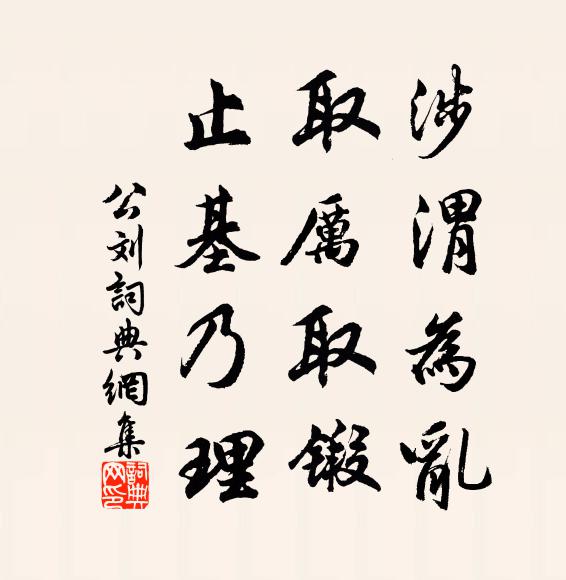 涉渭為亂
取厲取鍛
止基乃理
公刘詞典網集
詞典网印